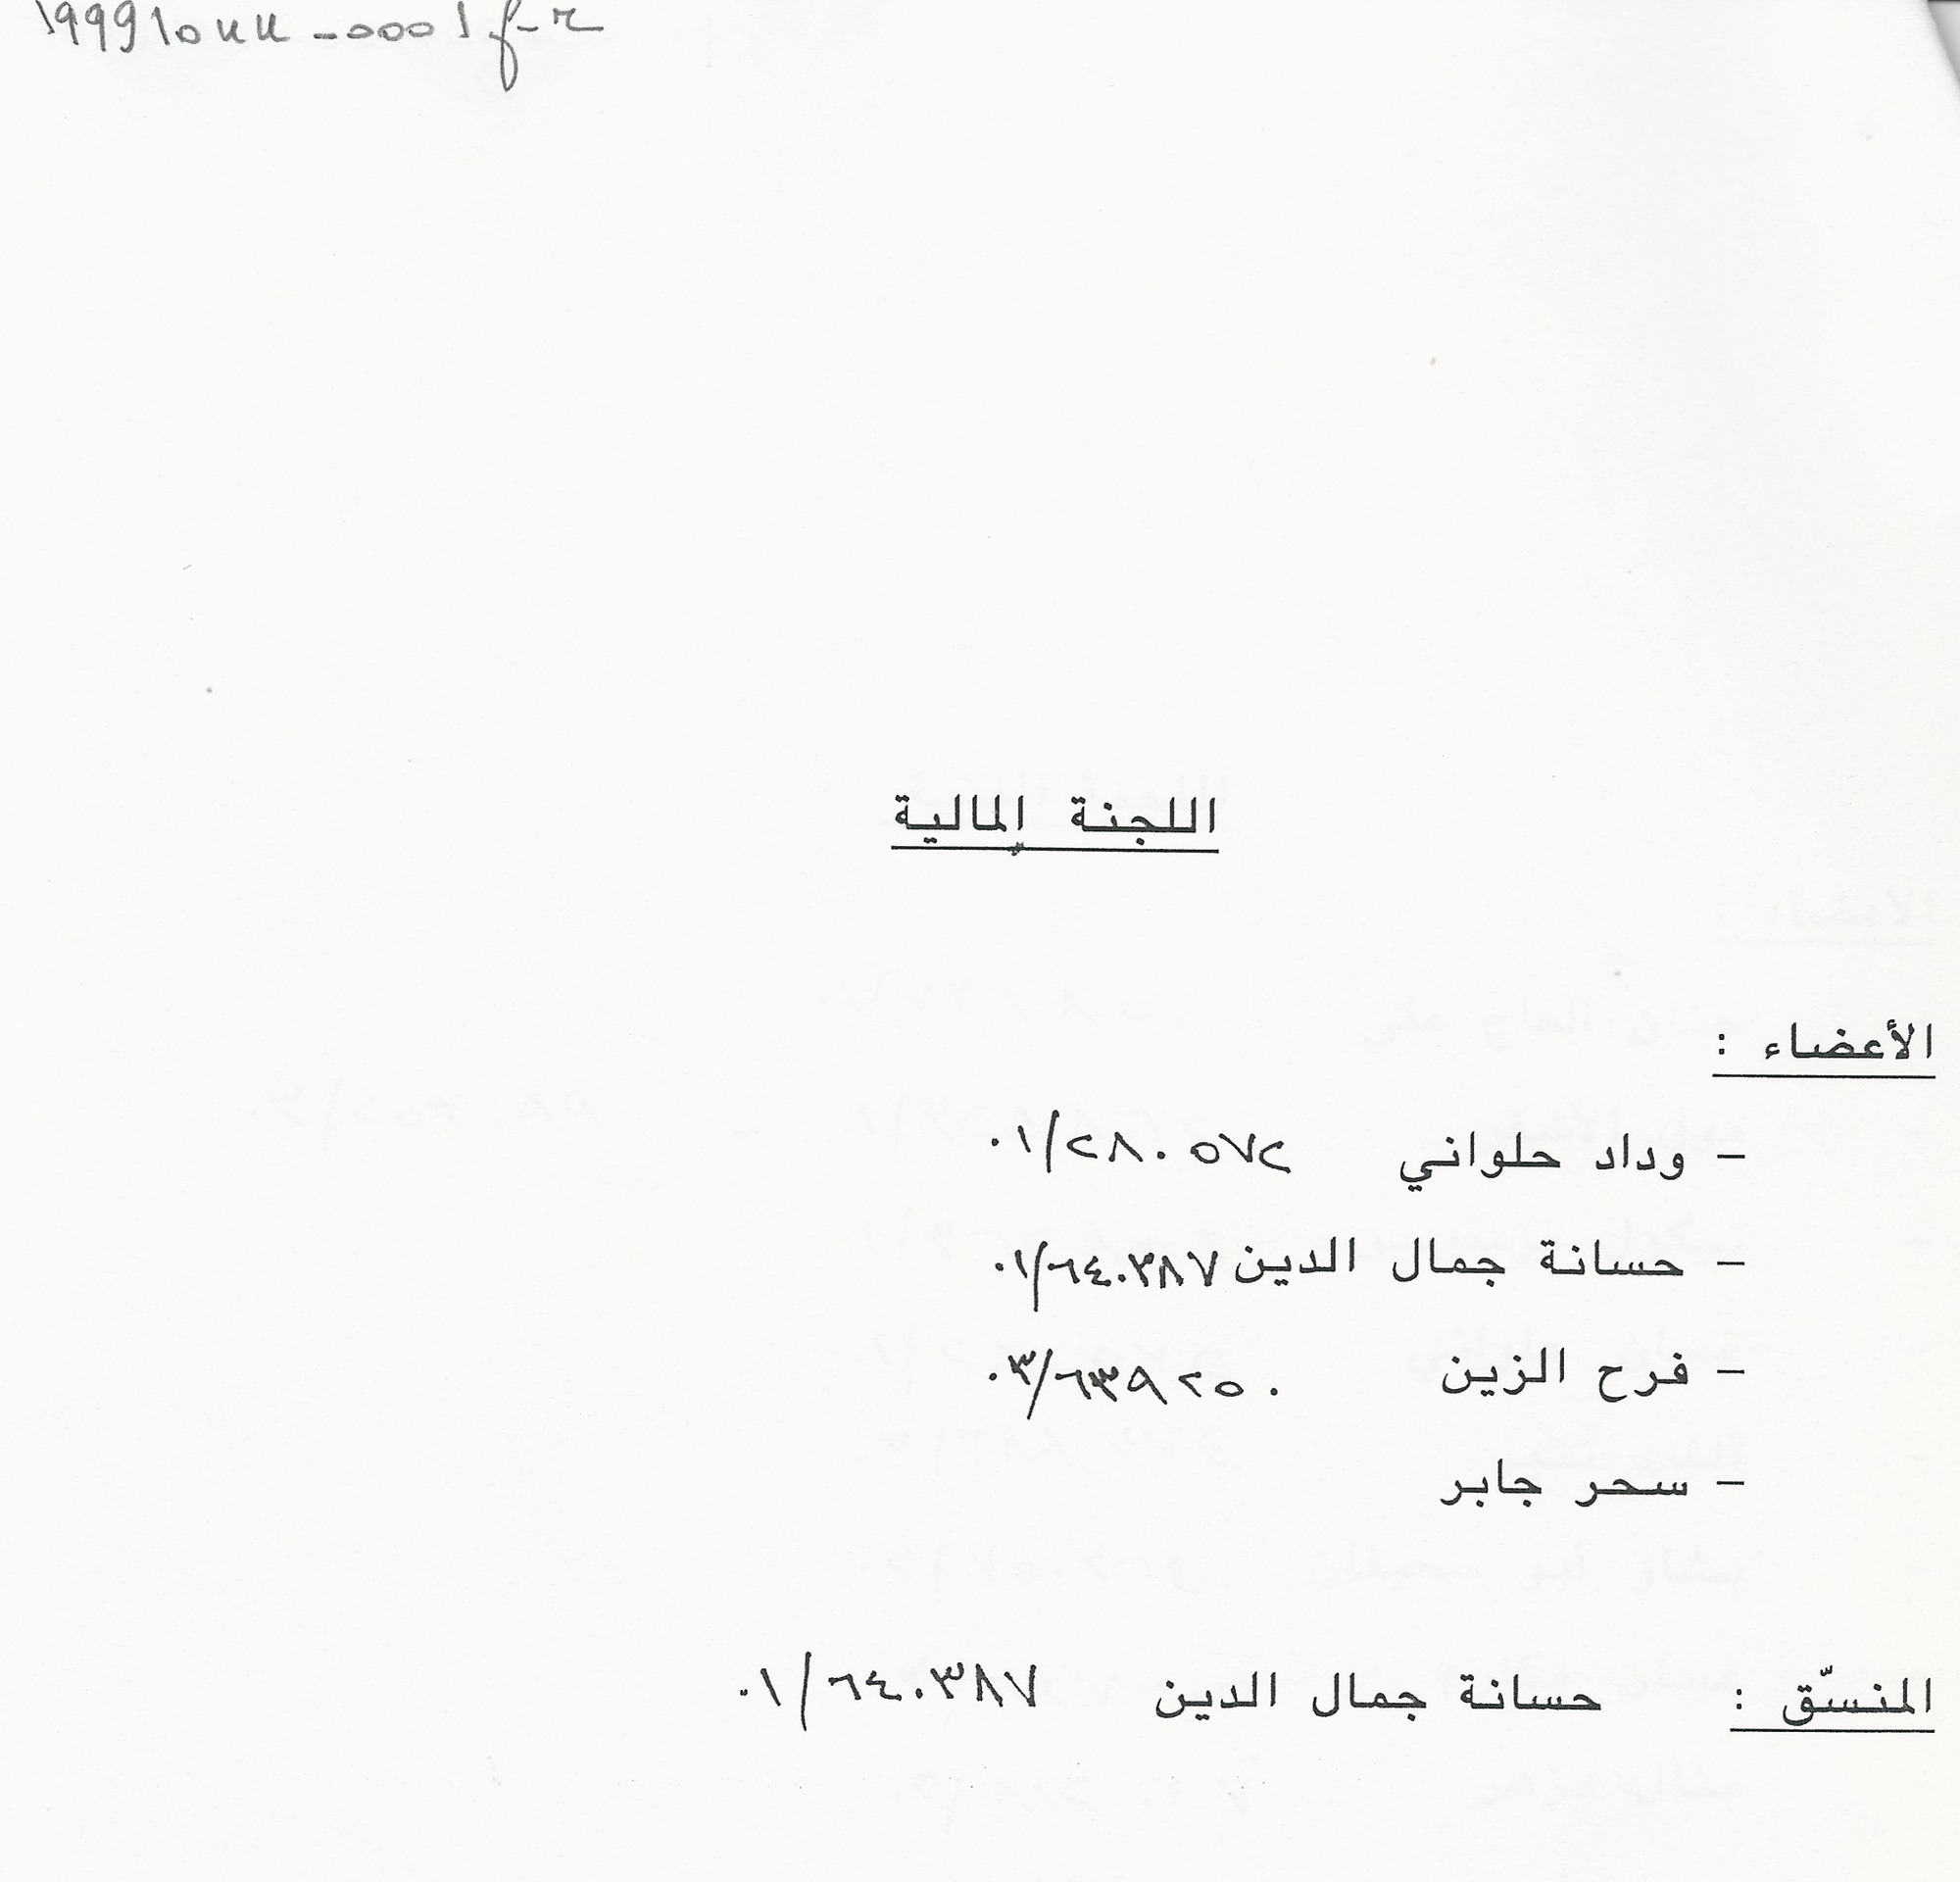 199910uu-0001f-r
اللجنة المالية
الأعضاء :
- وداد حلواني ٠١/٢٨٠٥٧٢
- حسانة جمال الدين ٠١/٦٤٠٣٨٧
- فرح الزين ٠٣/٦٣٩٢٥٠
- سحر جابر
المنسّق : حسانة جمال الدين ٠١/٦٤٠٣٨٧